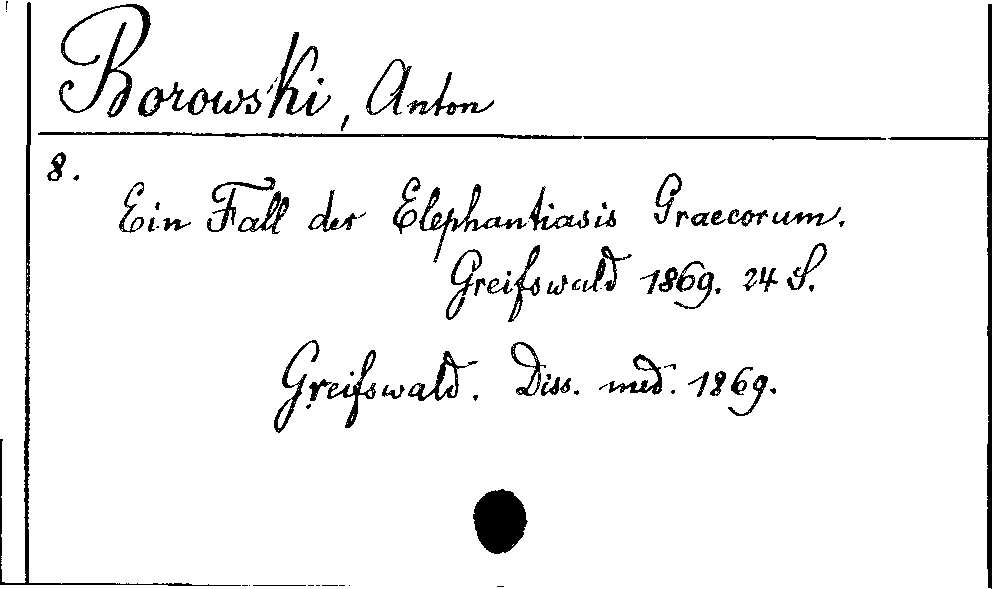 Borowski, Anton
8.
Ein Fall der Elephantiasis Graecorum.
Greifswald 1869. 24 S.
Greifswald. Diss. med. 1869.